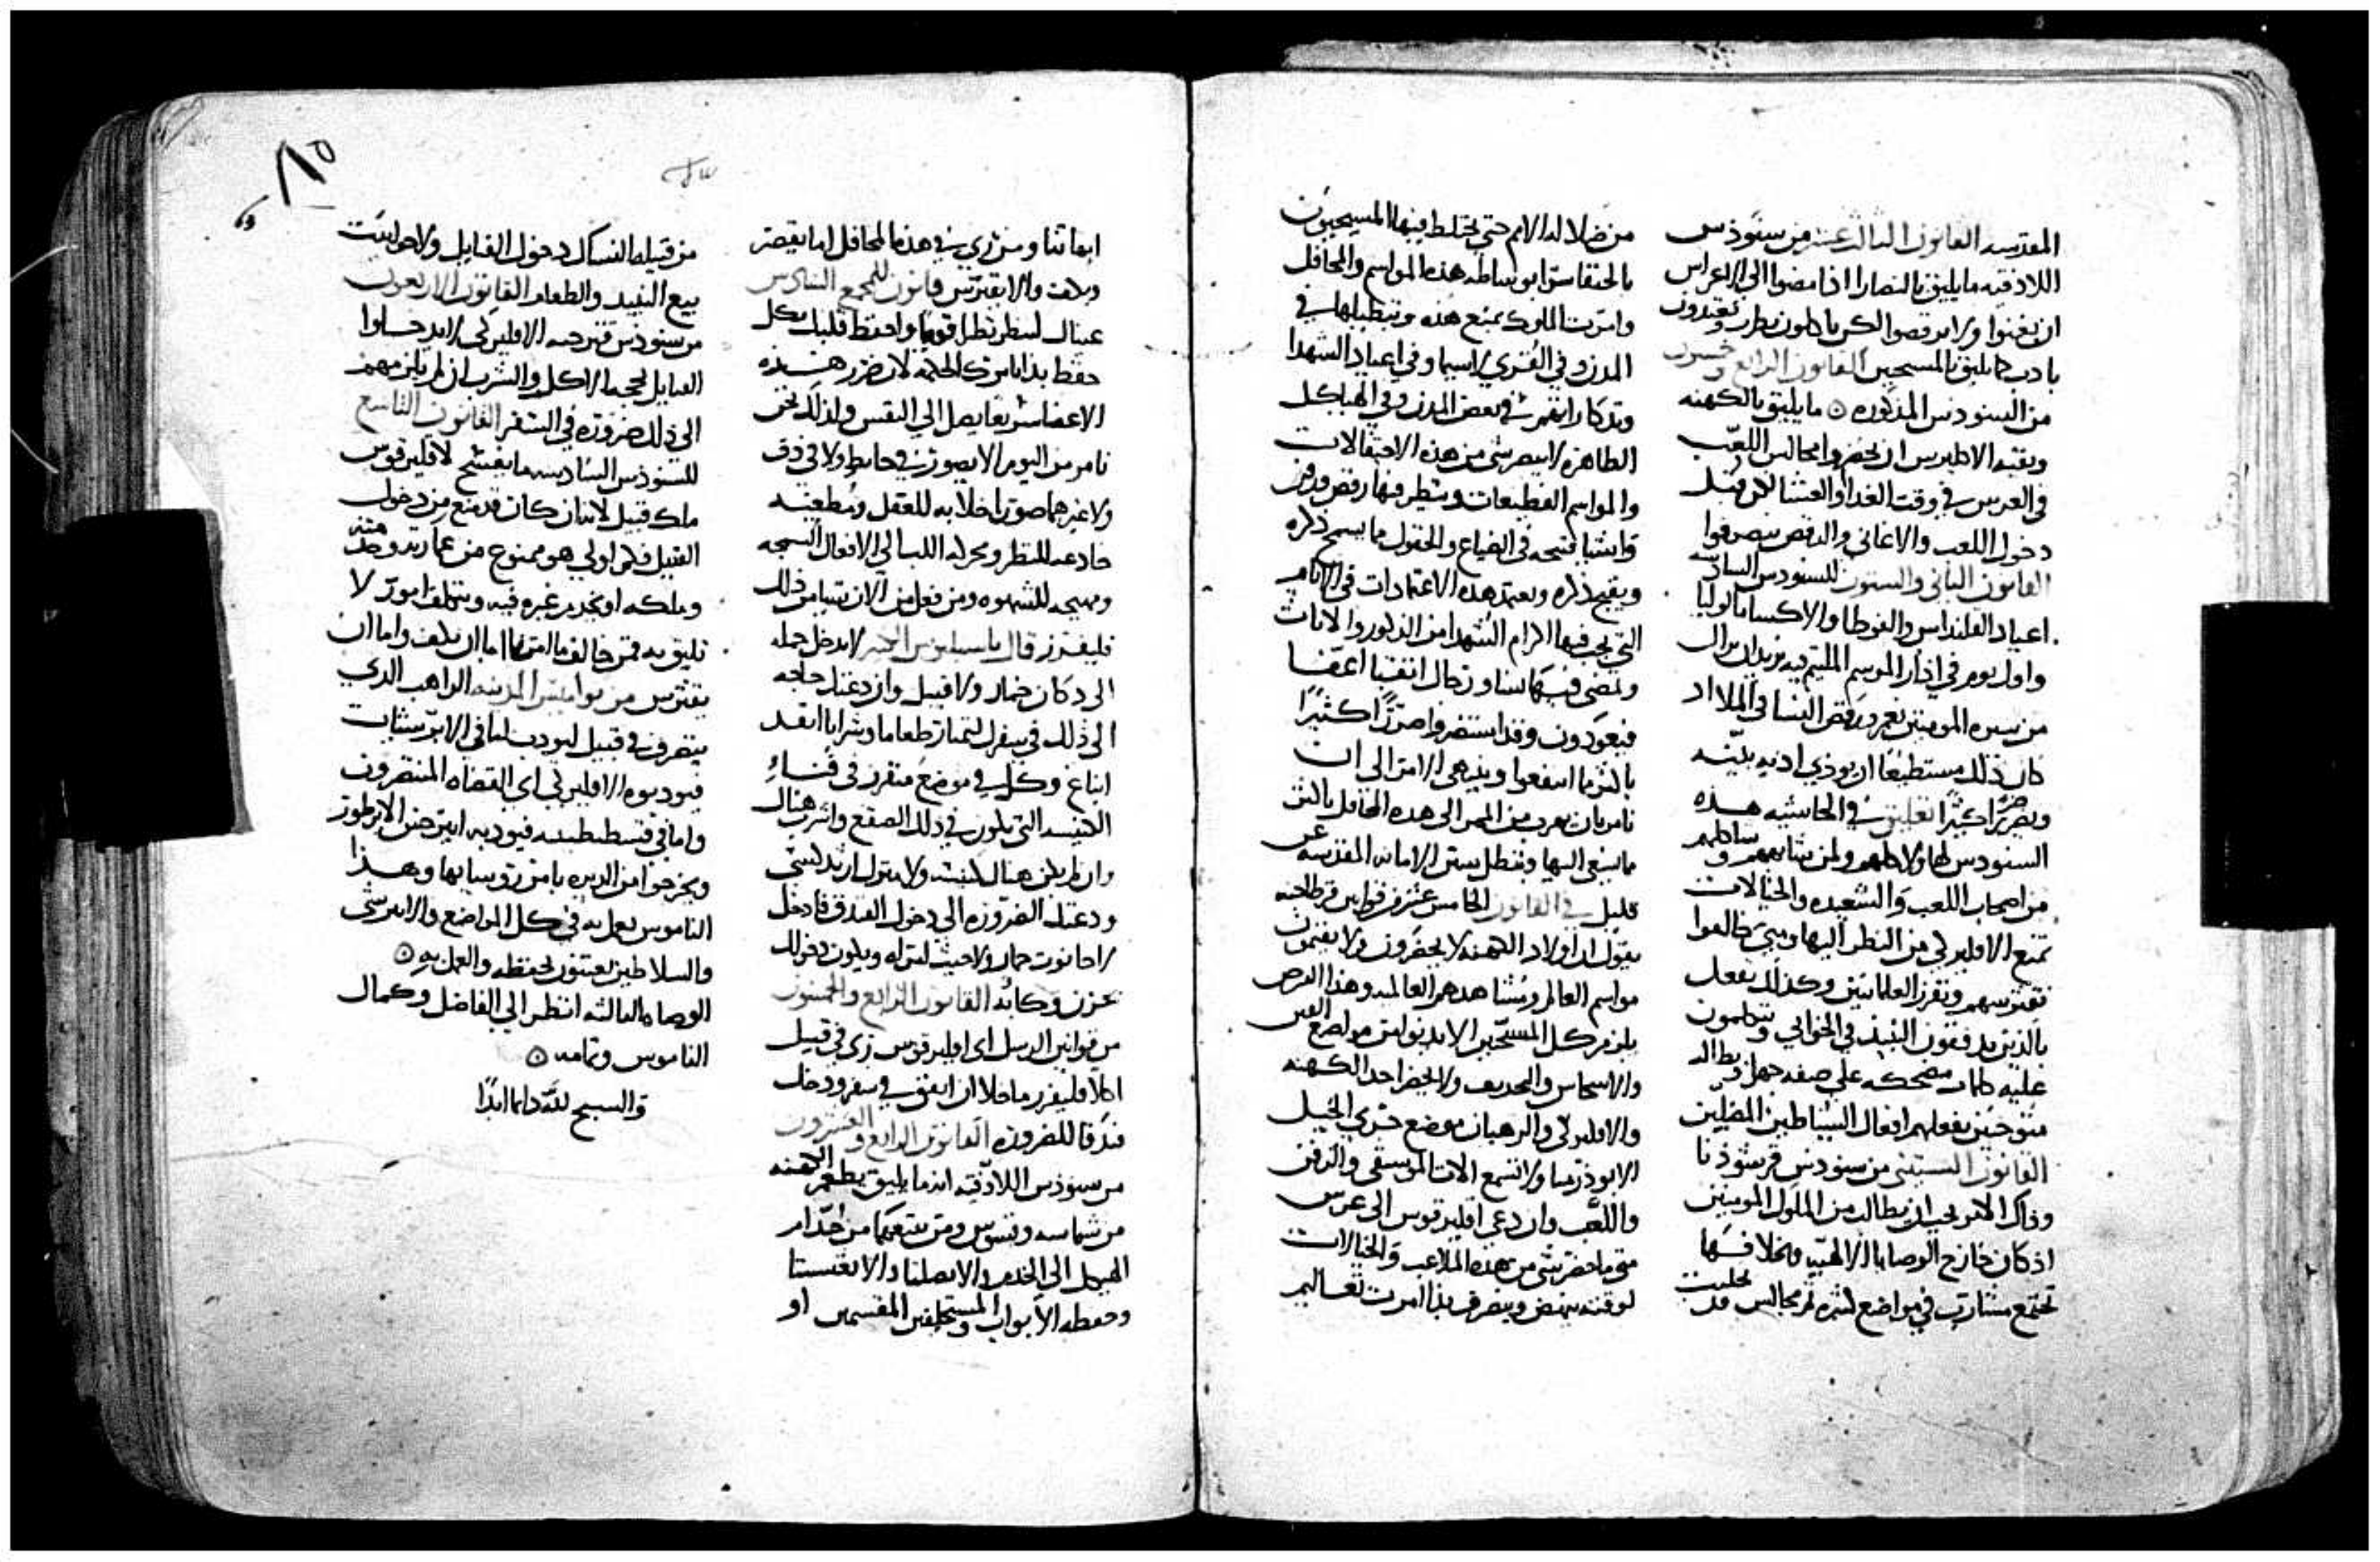 المقدسه القانون الثالث عشر من سنوذس
اللاذقيه ما يليق بالنصارا اذا مضوا الى الاعراس
ان يغنوا ولا يرقصوا لكن ياكلون بطرب ويتغدون
بادب كما يليق بالمسيحيين القانون الرابع وخمسون
من السنودس المذكوره ۞ ما يليق بالكهنه
وبقية الاكليرس ان يحضروا مجالس اللعب
في العرس في وقت الغدا والعشا لكن قبل
دخول اللعب والاغاني والرقص ينصرفوا
القانون الثاني والستون للسنودس السادسه
اعياد القلنداس والفوطا والاكساما لوليا
واول يوم في اذار الموسم الملتئم فيه نريد ان يزال
من سيره المومنين نعم ورقص النسا في الملا اد
كان ذلك مستطيعا ان يوذي اذيه بليّنه
ويضر ضررًا كبيرًا تعليق في الحاشيه هذه
السنودس لها ولا كلهم ولمن يشابههم ويشاكلهم
من اصحاب اللعب والشعبده والخيالات
تمنع الاقليركي من النظر اليها ومتى خالفوا
تقترسهم وتفرز العلمانيين وكذلك تفعل
بالذين يدفقون النبيذ في الخوابي ويتكلمون
عليه كلمات مضحكه على صفه جهل وبطاله
متوخين بفعلهم افعال الشياطين المضلين
القانون الستيني من سنودس قرنثوذنا
وذاك الامر يجب ان يطالب من الملوك المومنين
اذ كان خارج الوصايا الالهيه وبخلافها
تجتمع مشارب في مواضع كثيره ثم مجالس قد تجلبت
من ضلالة الامم حتى يختلط فيها المسيحيون
بالحنفا سرًا بوساطه هذه المواسم والمحافل
وامرت الملوك بمنع هذه وتبطيلها في
المدن وفي القرى لاسيما وفي اعياد الشهدا
وتذكاراتهم في بعض المدن وفي الهياكل
الطاهره لا يصير شي من هذه الاحتفالات
والمواسم الفظيعات وينظر فيها رقص ورمز
واشيا قبيحه في الضياع والحقول ما يسمج ذكره
ويقبح ذكره وبعتمد هذه الاعتمادات في الايام
التي يجب فيها اكرام الشهدا من الذكور والاناث
وتمضي فيها نسا ورجال اتقيا اعفا
فيعودون وقد استضروا ضررًا كثيرًا
باكثر ما انتفعوا وينتهي الامر الى ان
نامر بان يهرب من المجي الى هذه المحافل باكثر
ما ينبغي اليها وتبطل بستر الامانه المقدسه عن
قليل في القانون الخامس عشر من قوانين قرطاجنه
يقول ان اولاد الكهنه لا يحضرون ولا يقيمون
مواسم العالم ومشاهدهم العالميه وهذا الفرض
يلزم كل المسيحيين الا يدنوا من مواضع الغير
والانجاس والتجديف ولا يحضر احد الكهنه
والاقليركي والرهبان موضع جري الخيل
الابوذرميا ولا تسمع الات الموسيقى والزفن
واللعب وان دعي اقليرقوس الى عرس
متى ما حضر شي من هذه الملاعب والخيالات
لوقته ينهض وينصرف بذا امرت تعاليم
ابهاتنا ومن زي في هذه المحافل اما يقصر
ويكف والا يقترس قانون للمجمع السادس
عيناك لتنظر نظرًا قويمًا واحفظ قلبك بكل
حفظ بذا يامرك الحكمه لان ضرر هذه
الاعضا سريعا يصل الى النفس ولذلك نحن
نامر من اليوم الا يصور في حايط ولا في ورق
ولا غيرهما صورا خلابه للعقل ومطغيه
خادعه للنظر ومحركه اللب الى الافعال السمجه
ومهيجه للشهوه ومن فعل من الان شيا من ذلك
فليفرز قال باسيليوس الكبير لا يدخل جمله
الى دكان خمار ولا قبيل وان دعتك حاجه
الى ذلك في سفرك لتمتار طعاما وشرابا انفد
ابتاع وكل في موضع منفرد في فناء
الكنيسه التي تكون في ذلك الصقع واشرب هناك
وان لم يكن هناك كنيسه ولا منزل ارثدكسي
ودعتك الضروره الى دخول الفندق فادخل
لا حانوت خمار ولا حيث امراه ويكون دخولك
بحزن وكابه القانون الرابع والخمسون
من قوانين الرسل اي اقليرقوس زي في قبيل
اكلا فليفرز ما خلا ان اتفق في سفر ودخل
فندقا للضروره القانون الرابع والعشرون
من سنوذس اللاذقيه انه ما يليق بطغمة الكهنه
من شماسه وقسوس ومن يتبعهما من خدام
الهيكل الى الخدم والابصلتا والانغنسطا
وحفظه الابواب والمستحلفين المقسمين او
من قبيلة النساك دخول القبايل ولا حوانيت
بيع النبيذ والطعام القانون الاربعون
من سنوذس قرطاجنه الاقليركي لا يدخلوا
القبايل لحجه الاكل والشرب ان لم يلزمهم
الى ذلك ضروره في السفر القانون التاسع
للسنوذس السادسه ما يفسح لاقليرقوس
ملك قبيل لانه ان كان قد منع من دخول
القبيل فكم اولى هو ممنوع من عمارته وخدمته
ويملكه او يخدم غيره فيه ويتكلف امورًا لا
تليق به فمن خالف ما امرنا اما ان يكف واما ان
يقترس من نواميس المدينه الراهب الذي
يتصرف في قبيل ليودب اما في الابرشيات
فيودبوه الاقليركي اي القضاه المتصرفون
واما في قسطنطينيه فيودبه ابيرخس الابرطور
ويخرجوا من الديره يامر رؤسايها وهذا
الناموس يعمل به في كل المواضع والابرشي
والسلاطين يعتنون بحفظه والعمل به ۞
الوصاه الثالثه انظر الى الفاضل وكمال
الناموس وتمامه ۞
والسبح لله دايما ابدًا